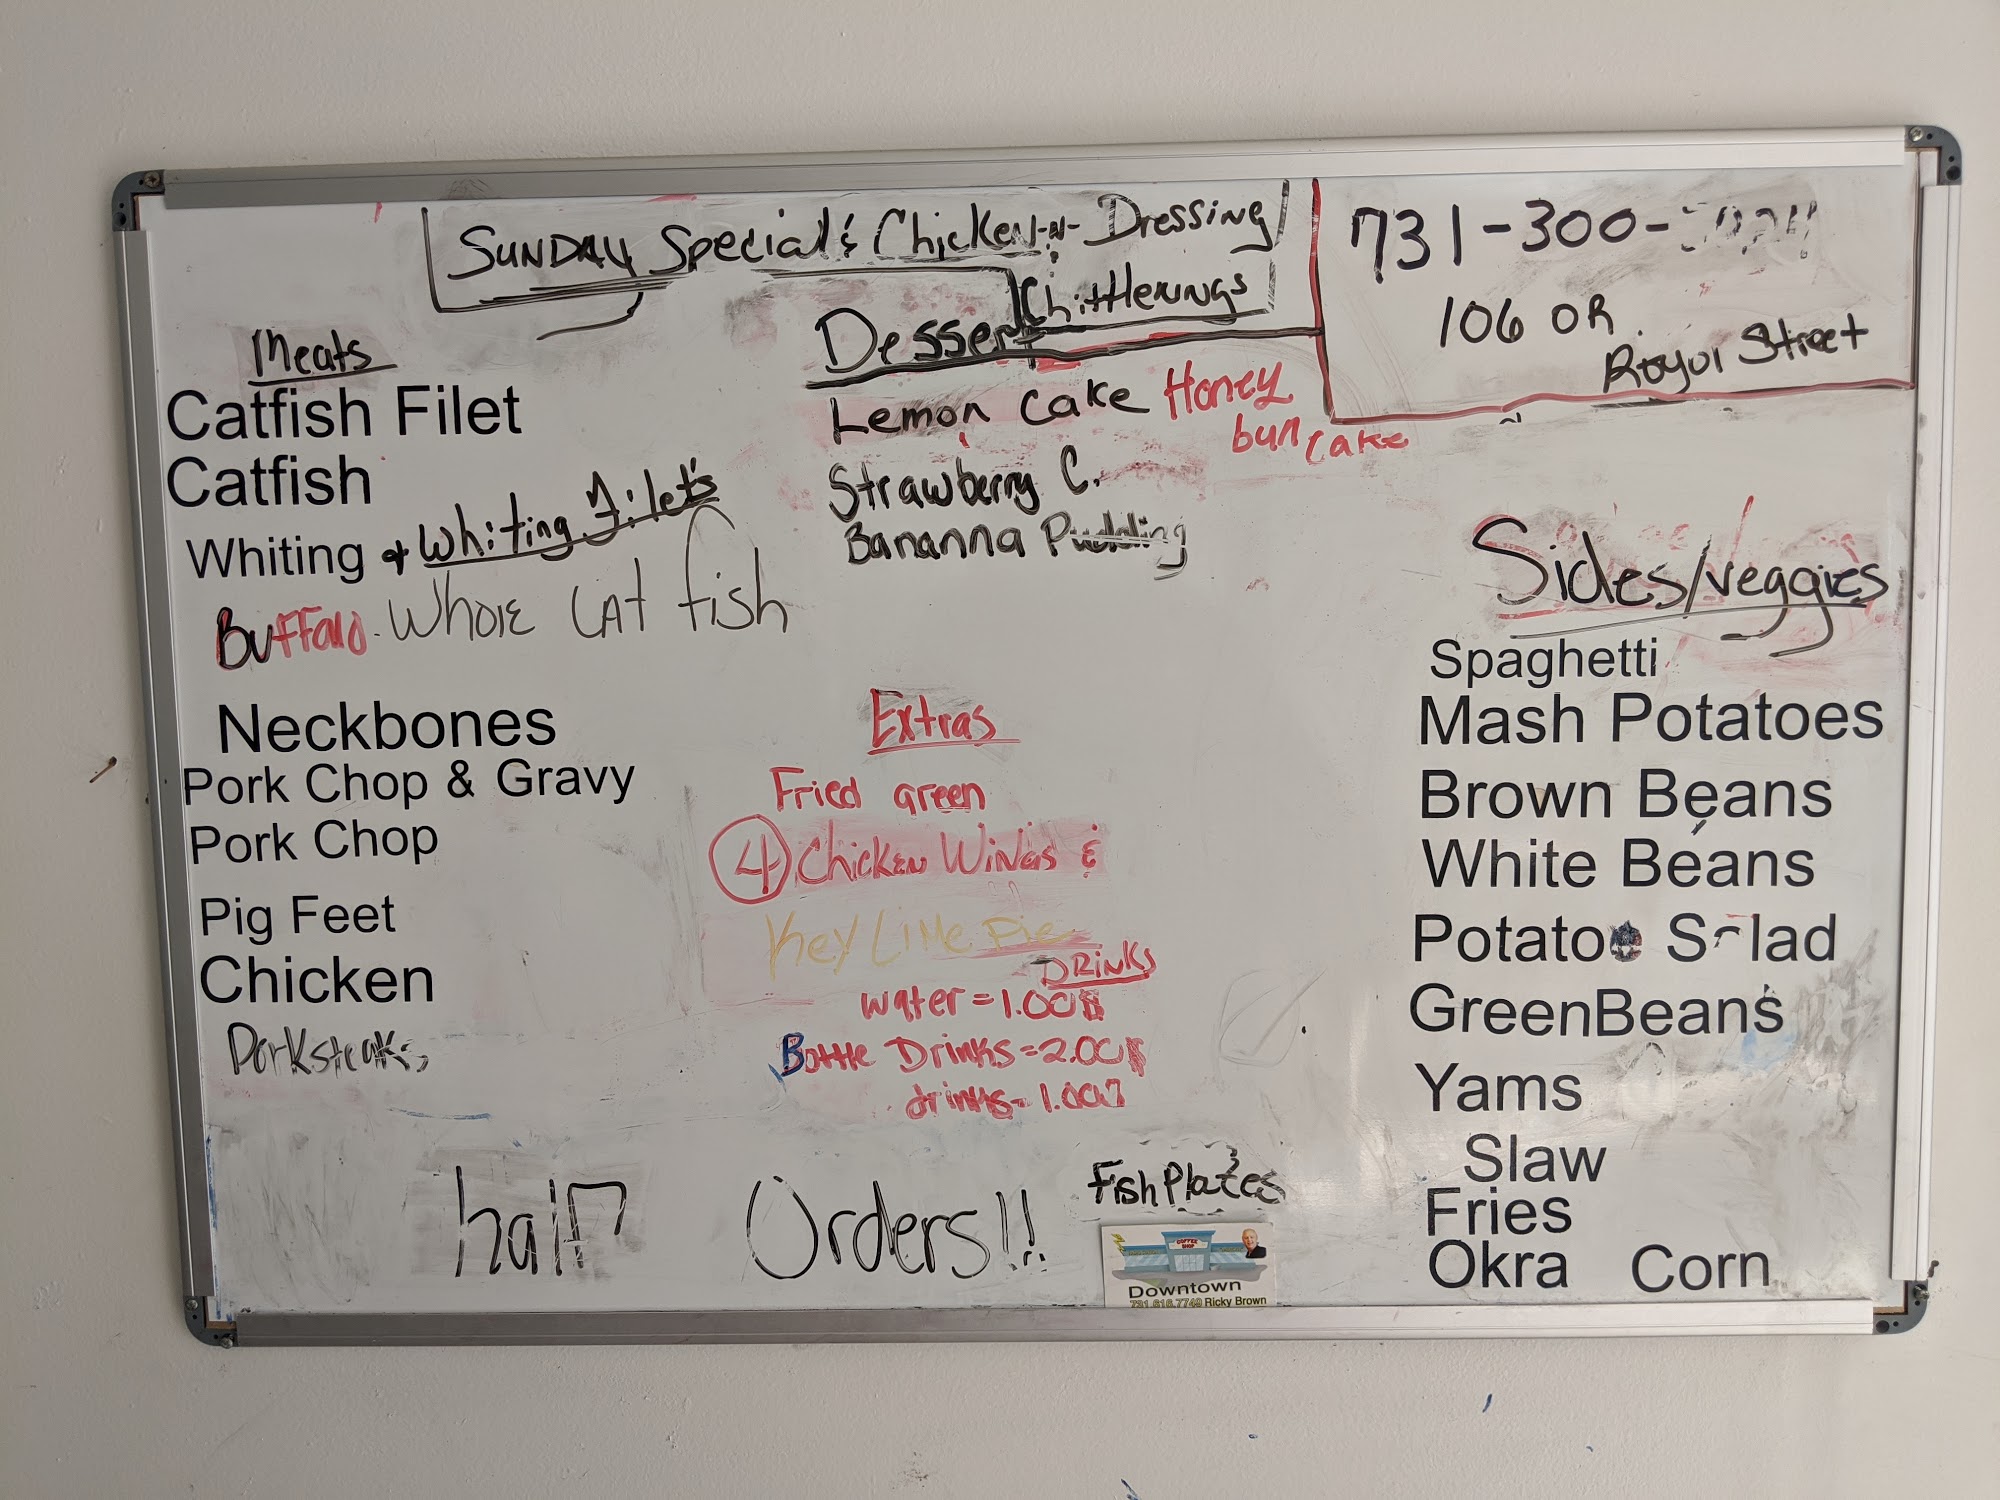 SUNDAY Special & Chicken-N-Dressing
Chittlerings
731-300-
106 OR.
Royal Street
Meats
Catfish Filet
Catfish
Whiting & Whiting Filet's
Buffalo. Whole CAT fish
Neckbones
Pork Chop & Gravy
Pork Chop
Pig Feet
Chicken
Porksteaks
Dessert
Lemon Cake Honey
bun Cake
Strawberry C.
Bananna Pudding
Extras
Fried green
4 Chicken Wings &
Key Lime Pie
DRINKS
water = 1.00$
Bottle Drinks = 2.00$
drinks - 1.00
Sides/veggies
Spaghetti
Mash Potatoes
Brown Beans
White Beans
Potatoe S lad
GreenBeans
Yams
Slaw
Fries
Okra Corn
half Orders!!
Fish Plates
COFFEE SHOP
Downtown
731.616.7749 Ricky Brown